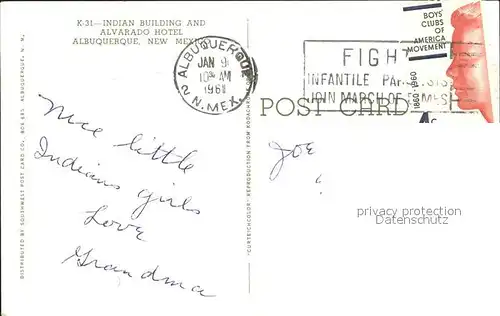 K-31—INDIAN BUILDING AND
ALVARADO HOTEL
ALBUQUERQUE, NEW MEXICO
ALBUQUERQUE
JAN 9
10 AM
1961
2 N. MEX.
FIGHT
INFANTILE PARALYSIS
JOIN MARCH OF DIMES
BOYS'
CLUBS
OF
AMERICA
MOVEMENT
1860-1960
4c
POST CARD
Nice little
Indians girls
Love
Grandma
Joe
?
privacy protection
watermark
DISTRIBUTED BY SOUTHWEST POST CARD CO., BOX 685, ALBUQUERQUE, N. M.
"CURTEICHCOLOR" REPRODUCTION FROM KODACHROME